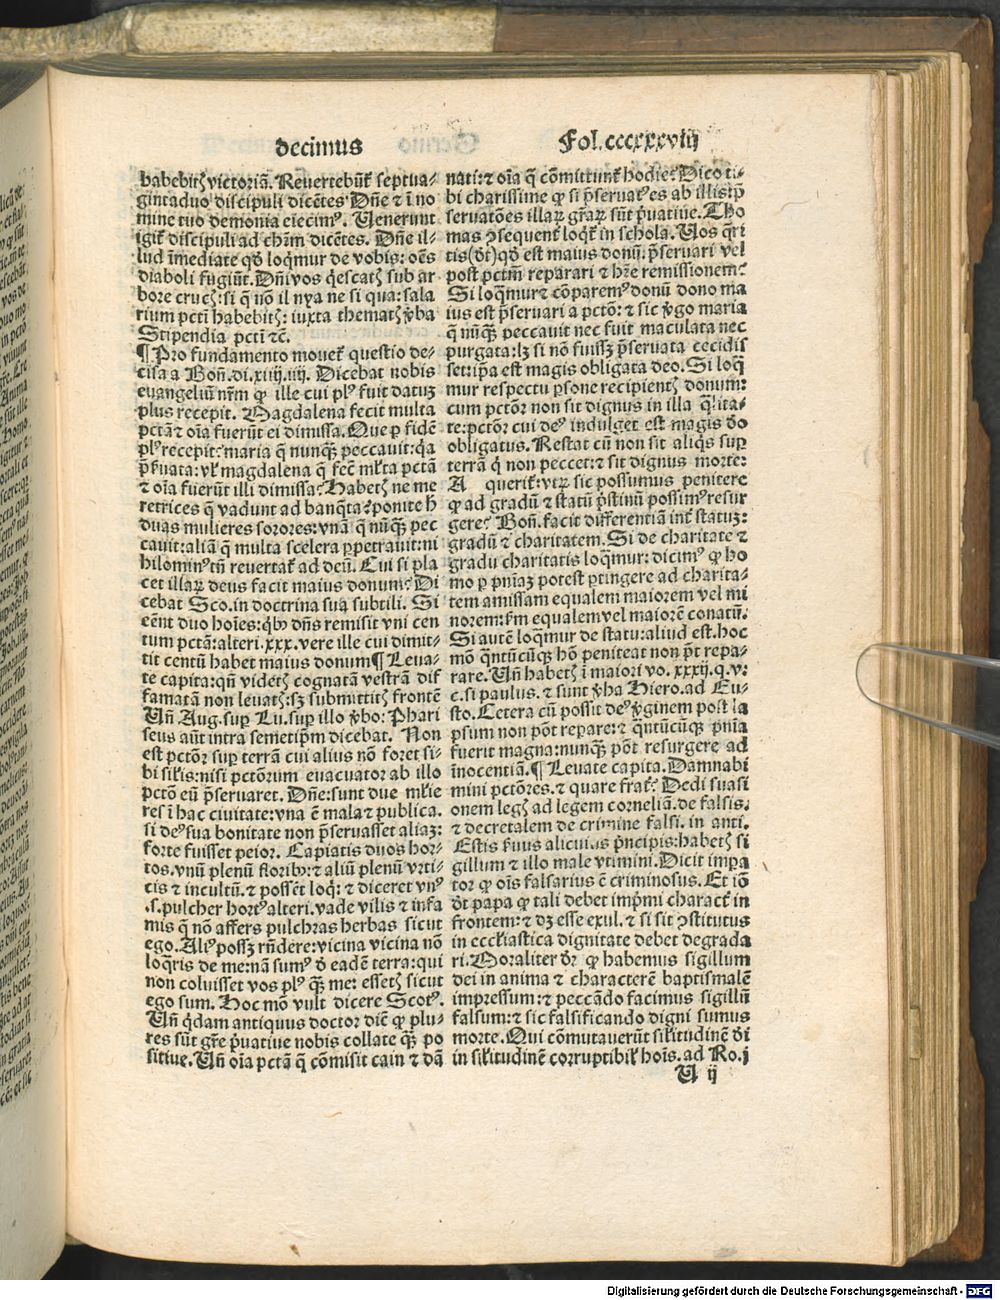 decimus
Fol. ccccxxxviij
habebitꝭ victoriā. Reuertebūt᷑ septua-
gintaduo discipuli dicētes Dn̄e ⁊ ī no
mine tuo demonia eiecimꝰ. Uenerunt
igit᷑ discipuli ad chr̄m dicētes. Dn̄e il-
lud īmediate qd̕ loq̄mur de vobis: oēs
diaboli fugiūt. Dn̄i vos q̄escatꝭ sub ar
bore crucꝭ: si q̄ nō il nya ne si qua: sala
rium pctī habebitꝭ: iuxta thematꝭ v̄ba
Stipendia pcti ⁊c̄.
¶ Pro fundamento mouet᷑ questio de-
cisa a Bon̄. di. xiiij. iiij. Dicebat nobis
euangeliū nr̄m ꝙ ille cui plꝰ fuit datuꝫ
plus recepit. Magdalena fecit multa
pctā ⁊ oīa fuerūt ei dimissa. Que ꝑ fidē
plꝰ recepit: maria q̄ nunqꝫ peccauit: q̄a
p̄ẜuata: vl̕ magdalena q̄ fec̄ ml̕ta pctā
⁊ oīa fuerūt illi dimissa? Habetꝭ ne me
retrices q̄ vadunt ad banq̄ta? ponite h̄
duas mulieres sorores: vnā q̄ nūqꝫ pec
cauit: aliā q̄ multa scelera ꝑpetrauit: ni
hilominꝰ tn̄ reuertat᷑ ad deū. Cui si pla
cet illaꝝ deus facit maius donum? Di
cebat Sco. in doctrina sua subtili. Si
eēnt duo hoīes: qb̕ꝰ dn̄s remisit vni cen
tum pctā: alteri .xxx. vere ille cui dimit-
tit centū habet maius donum ¶ Leua-
te capita: qn̄ videtꝭ cognatā vestrā dif
famatā non leuatꝭ: sꝫ submittitꝭ frontē
Un̄ Aug. suꝑ Lu. suꝑ illo v̄bo: Phari
seus aūt intra semetip̄m dicebat. Non
est pctōr suꝑ terrā cui alius nō foret si-
bi sil̕is: nisi pctōrum euacuator ab illo
pctō eū p̄seruaret. Dn̄e: sunt due ml̕ie
res ī hac ciuitate: vna ē mala ⁊ publica.
si deꝰ sua bonitate non p̄seruasset aliaꝫ:
forte fuisset peior. Capiatis duos hor-
tos. vnū plenū floribꝰ: ⁊ aliū plenū vrti-
cis ⁊ incultū. ⁊ possēt loq̄: ⁊ diceret vnꝰ
.s. pulcher hortꝰ alteri. vade vilis ⁊ infa
mis q̄ nō affers pulchras herbas sicut
ego. Aliꝰ possꝫ rn̄dere: vicina vicina nō
loq̄ris de me: nā sumꝰ d̄ eadē terra: qui
non coluisset vos plꝰ qꝫ me: essetꝭ sicut
ego sum. Hoc mō vult dicere Scotꝰ.
Un̄ q̄dam antiquus doctor dic̄ ꝙ plu-
res sūt gr̄e p̄uatiue nobis collate qꝫ po
sitiue. Un̄ oīa pctā q̄ cōmisit cain ⁊ dā
nati: ⁊ oīa q̄ cōmittunt᷑ hodie? Dico ti-
bi charissime ꝙ si p̄seruat᷑ es ab illis: p̄
seruatōes illaꝝ gr̄aꝝ sūt p̄uatiue. Tho
mas ꝯsequent᷑ loq̄t᷑ in schola. Uos q̄ri
tis (d̄t) qd̕ est maius donū: p̄seruari vel
post pctm̄ reparari ⁊ hr̄e remissionem?
Si loq̄mur ⁊ cōparemꝰ donū dono ma
ius est p̄seruari a pctō: ⁊ sic v̄go maria
q̄ nūqꝫ peccauit nec fuit maculata nec
purgata: lꝫ si nō fuissꝫ p̄seruata cecidis
set: ip̄a est magis obligata deo. Si loq̄
mur respectu ꝑsone recipientꝭ donum:
cum pctōr non sit dignus in illa q̄lita-
te: pctōr cui deꝰ indulget est magis d̄o
obligatus. Restat cū non sit aliq̄s suꝑ
terrā q̄ non peccet: ⁊ sit dignus morte:
A querit᷑: vtꝝ sic possumus penitere
ꝙ ad gradū ⁊ statū p̄stinū possimꝰ resur
gere? Bon̄. facit differentiā int᷑ statuꝫ:
gradū ⁊ charitatem. Si de charitate ⁊
gradu charitatis loq̄mur: dicimꝰ ꝙ ho
mo ꝑ pn̄iaꝫ potest ꝑtingere ad charita-
tem amissam equalem maiorem vel mi
norem: ẜm equalem vel maiorē conatū.
Si autē loq̄mur de statu: aliud est. hoc
mō q̄ntūcūqꝫ hō peniteat non pōt repa-
rare. Un̄ habetꝭ ī maiori vo. xxxij. q. v.
c. si paulus. ⁊ sunt v̄ba Hiero. ad Eu-
sto. Cetera cū possit deꝰ v̄ginem post la
psum non pōt repare: ⁊ q̄ntūcūqꝫ pn̄ia
fuerit magna: nunqꝫ pōt resurgere ad
īnocentiā. ¶ Leuate capita. Damnabi
mini pctōres. ⁊ quare frat᷑? Dedi suasi
onem legꝭ ad legem corneliā. de falsis.
⁊ decretalem de crimine falsi. in anti.
Estis ẜuus alicuius p̄ncipis: habetꝭ si
gillum ⁊ illo male vtimini. Dicit impa
tor ꝙ oīs falsarius ē criminosus. Et iō
d̄t papa ꝙ tali debet imp̄mi charact᷑ in
frontem: ⁊ dꝫ esse exul. ⁊ si sit ꝯstitutus
in eccl̕iastica dignitate debet degrada
ri. Moraliter dr̄ ꝙ habemus sigillum
dei in anima ⁊ characterē baptismalē
impressum: ⁊ peccādo facimus sigillū
falsum: ⁊ sic falsificando digni sumus
morte. Qui cōmutauerūt sil̕itudinē d̄i
in sil̕itudinē corruptibil̕ hoīs. ad Ro. j
U ij
Digitalisierung gefördert durch die Deutsche Forschungsgemeinschaft - DFG